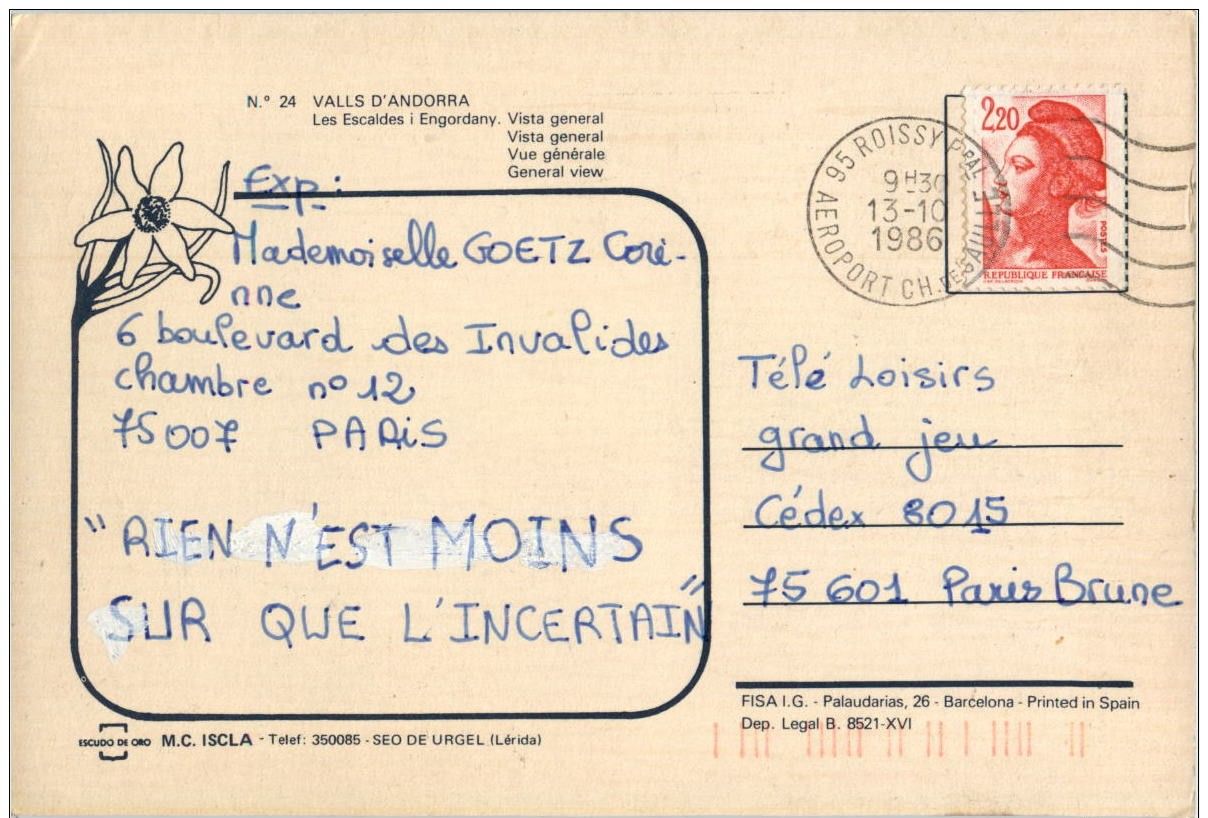 N.° 24 VALLS D'ANDORRA
Les Escaldes i Engordany. Vista general
Vista general
Vue générale
General view
Exp:
Mademoiselle GOETZ Cori-
nne
6 boulevard des Invalides
chambre n° 12
75007 PARIS
"RIEN N'EST MOINS
SUR QUE L'INCERTAIN"
ESCUDO DE ORO M.C. ISCLA - Telef: 350085 - SEO DE URGEL (Lérida)
95 ROISSY PPAL
9H30
13-10
1986
AEROPORT CH. DE GAULLE
2,20
POSTES
REPUBLIQUE FRANÇAISE
Télé Loisirs
grand jeu
Cédex 8015
75 601 Paris Brune
FISA I.G. - Palaudarias, 26 - Barcelona - Printed in Spain
Dep. Legal B. 8521-XVI